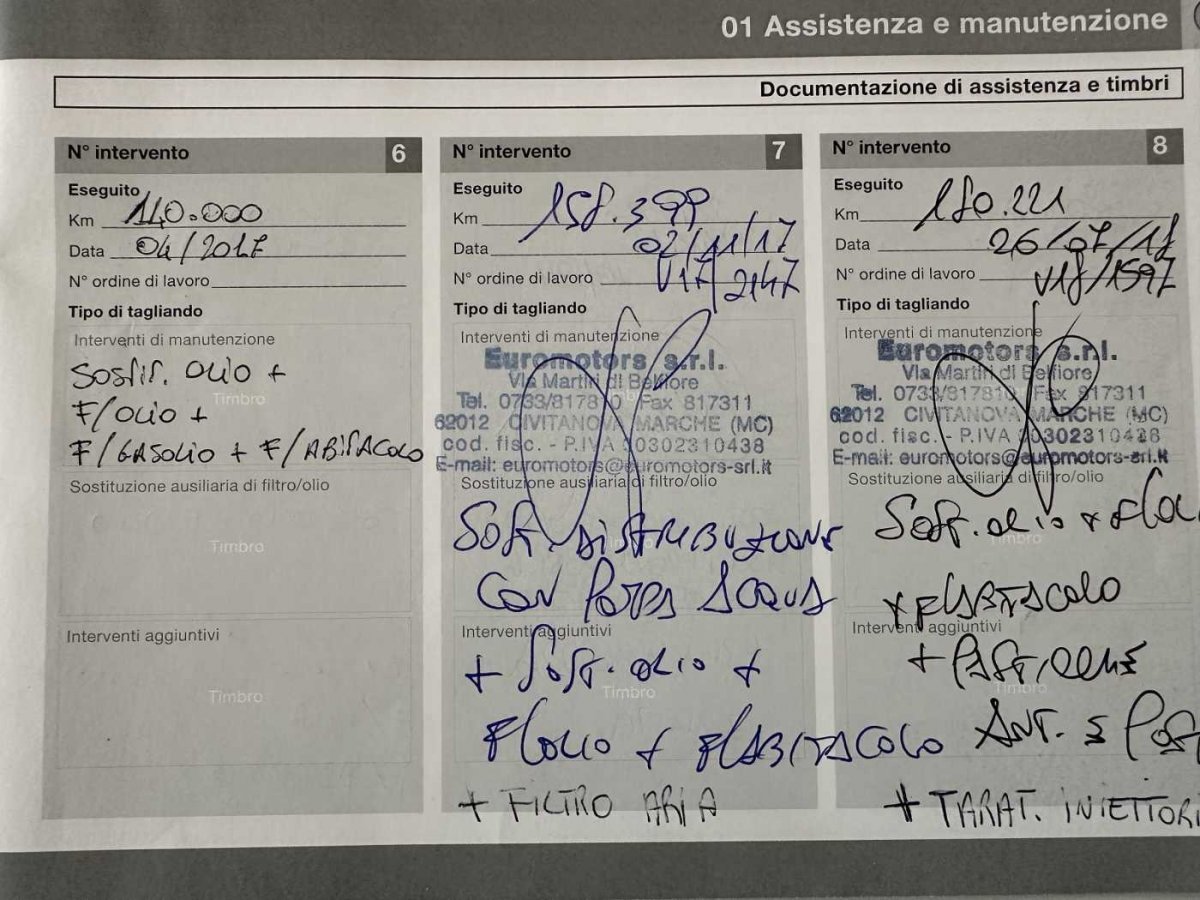 01 Assistenza e manutenzione
Documentazione di assistenza e timbri
N° intervento 6
Eseguito
Km 140.000
Data 04/2017
N° ordine di lavoro
Tipo di tagliando
Interventi di manutenzione
Sostit. olio +
Timbro
F/olio +
F/GASOLIO + F/ABITACOLO
Sostituzione ausiliaria di filtro/olio
Timbro
Interventi aggiuntivi
Timbro
N° intervento 7
Eseguito
Km 158.399
Data 02/11/17
N° ordine di lavoro V17/2147
Tipo di tagliando
Interventi di manutenzione
Euromotors s.r.l.
Via Martiri di Belfiore
Tel. 0733/817810 Fax 817311
62012 CIVITANOVA MARCHE (MC)
cod. fisc. - P.IVA 00302310438
E-mail: euromotors@euromotors-srl.it
Sostituzione ausiliaria di filtro/olio
Sost. DISTRIBUZIONE
Timbro
CON POMPA ACQUA
Interventi aggiuntivi
+ Sost. olio +
Timbro
F/olio + F/ABITACOLO
+ FILTRO ARIA
N° intervento 8
Eseguito
Km 180.221
Data 26/07/18
N° ordine di lavoro V18/1597
Tipo di tagliando
Interventi di manutenzione
Euromotors s.r.l.
Via Martiri di Belfiore
Tel. 0733/817810 Fax 817311
62012 CIVITANOVA MARCHE (MC)
cod. fisc. - P.IVA 00302310438
E-mail: euromotors@euromotors-srl.it
Sostituzione ausiliaria di filtro/olio
Sost. olio +
Timbro
+ F/ABITACOLO
Interventi aggiuntivi
+ PASTICCHE
Timbro
ANT. E POST
+ TARAT. INIETTORI